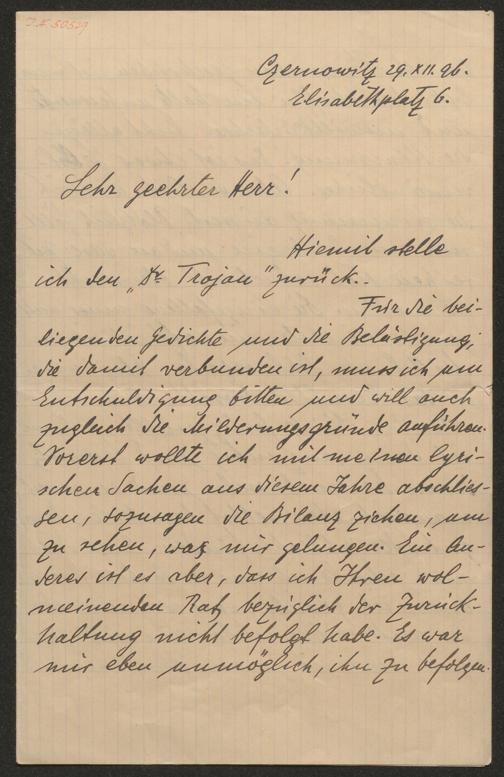 I.N. 50529
Czernowitz 29.XII.96.
Elisabethplatz 6.
Sehr geehrter Herr!
Hiemit stelle
ich den „Dr Trojan" zurück..
Für die bei-
liegenden Gedichte und die Belästigung,
die damit verbunden ist, muss ich um
Entschuldigung bitten und will auch
zugleich die Milderungsgründe anführen.
Vorerst wollte ich mit meinen lyri-
schen Sachen aus diesem Jahre abschlies-
sen, sozusagen die Bilanz ziehen, um
zu sehen, was mir gelungen. Ein An-
deres ist es aber, dass ich Ihren wol-
meinenden Rat bezüglich der Zurück-
haltung nicht befolgt habe. Es war
mir eben unmöglich, ihn zu befolgen.